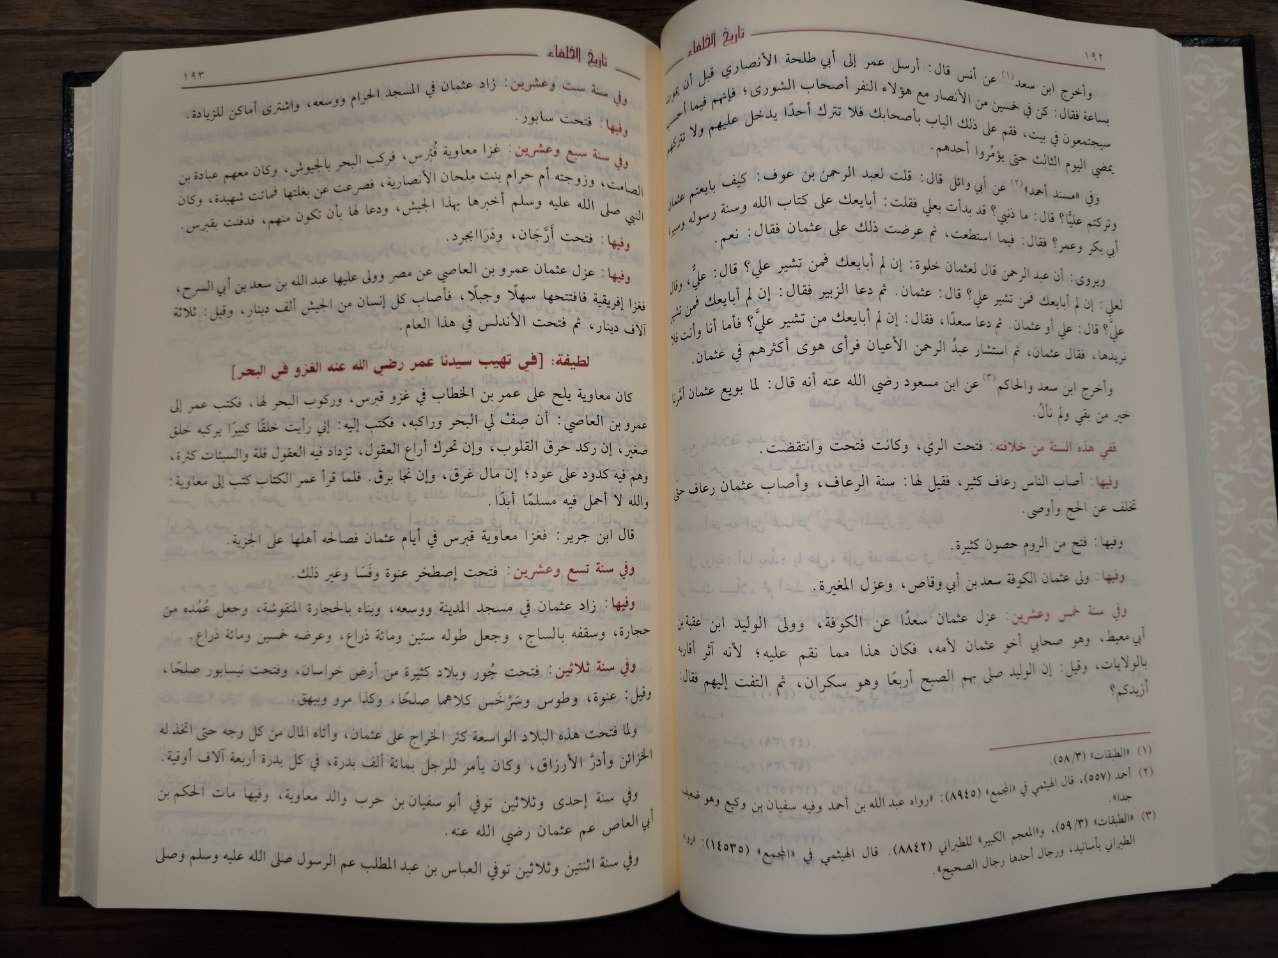 ١٩٢
تاريخ الخلفاء
وأخرج ابن سعد(١) عن أنس قال: أرسل عمر إلى أبي طلحة الأنصاري قبل أن يموت
بساعة فقال: كن في خمسين من الأنصار مع هؤلاء النفر أصحاب الشورى؛ فإنهم فيما أحسب
سيجتمعون في بيت، فقم على ذلك الباب بأصحابك فلا تترك أحدًا يدخل عليهم ولا تتركهم
يمضي اليوم الثالث حتى يؤمِّروا أحدهم.
وفي «مسند أحمد»(٢) عن أبي وائل قال: قلت لعبد الرحمن بن عوف: كيف بايعتم عثمان
وتركتم عليًّا؟ قال: ما ذنبي؟ قد بدأت بعلي فقلت: أبايعك على كتاب الله وسنة رسوله وسيرة
أبي بكر وعمر؟ فقال: فيما استطعت، ثم عرضت ذلك على عثمان فقال: نعم.
ويروى: أن عبد الرحمن قال لعثمان خلوة: إن لم أبايعك فمن تشير علي؟ قال: عليٌّ، وقال
لعلي: إن لم أبايعك فمن تشير علي؟ قال: عثمان. ثم دعا الزبير فقال: إن لم أبايعك فمن تشير
عليَّ؟ قال: علي أو عثمان. ثم دعا سعدًا، فقال: إن لم أبايعك من تشير عليَّ؟ فأما أنا وأنت فلا
نريدها، فقال عثمان، ثم استشار عبدُ الرحمن الأعيان فرأى هوى أكثرهم في عثمان.
وأخرج ابن سعد والحاكم(٣) عن ابن مسعود رضي الله عنه أنه قال: لما بويع عثمان أمَّرنا
خير من بقي ولم نألُ.
ففي هذه السنة من خلافته: فتحت الري، وكانت فتحت وانتقضت.
وفيها: أصاب الناس رعاف كثير، فقيل لها: سنة الرعاف، وأصاب عثمان رعاف حتى
تخلف عن الحج وأوصى.
وفيها: فتح من الروم حصون كثيرة.
وفيها: ولى عثمان الكوفة سعد بن أبي وقاص، وعزل المغيرة.
وفي سنة خمس وعشرين: عزل عثمان سعدًا عن الكوفة، وولى الوليد ابن عقبة بن
أبي معيط، وهو صحابي أخو عثمان لأمه، فكان هذا مما نقم عليه؛ لأنه آثر أقاربه
بالولايات، وقيل: إن الوليد صلى بهم الصبح أربعًا وهو سكران، ثم التفت إليهم فقال:
أزيدكم؟
(١) «الطبقات» (٥٨/٣).
(٢) أحمد (٥٥٧)، قال الهيثمي في «المجمع» (٨٩٤٥): «رواه عبد الله بن أحمد وفيه سفيان بن وكيع وهو ضعيف
جدا».
(٣) «الطبقات» (٥٩/٣)، و«المعجم الكبير» للطبراني (٨٨٤٢). قال الهيثمي في «المجمع» (١٤٥٣٥): «رواه
الطبراني بأسانيد، ورجال أحدها رجال الصحيح».
تاريخ الخلفاء
١٩٣
وفي سنة ست وعشرين: زاد عثمان في المسجد الحرام ووسعه، واشترى أماكن للزيادة.
وفيها: فتحت سابور.
وفي سنة سبع وعشرين: غزا معاوية قُبْرس، فركب البحر بالجيوش، وكان معهم عبادة بن
الصامت، وزوجته أم حرام بنت مِلحان الأنصارية، فصرعت عن بغلتها فماتت شهيدة، وكان
النبي صلى الله عليه وسلم أخبرها بهذا الجيش، ودعا لها بأن تكون منهم، فدفنت بقبرس.
وفيها: فتحت أرَّجَان، ودَرَابجرد.
وفيها: عزل عثمان عمرو بن العاصي عن مصر وولى عليها عبد الله بن سعد بن أبي السرح،
فغزا إفريقية فافتتحها سهلًا وجبلًا، فأصاب كل إنسان من الجيش ألف دينار، وقيل: ثلاثة
آلاف دينار، ثم فتحت الأندلس في هذا العام.
لطيفة: [في تهيب سيدنا عمر رضي الله عنه الغزو في البحر]
كان معاوية يلح على عمر بن الخطاب في غزو قبرس، وركوب البحر لها، فكتب عمر إلى
عمرو بن العاصي: أن صِفْ لي البحر وراكبه، فكتب إليه: إني رأيت خلقًا كبيرًا يركبه خلق
صغير، إن ركد حرق القلوب، وإن تحرك أراع العقول، تزداد فيه العقول قلة والسيئات كثرة،
وهم فيه كدود على عود؛ إن مال غرق، وإن نجا برق. فلما قرأ عمر الكتاب كتب إلى معاوية:
والله لا أحمل فيه مسلمًا أبدًا.
قال ابن جرير: فغزا معاوية قبرس في أيام عثمان فصالحه أهلها على الجزية.
وفي سنة تسع وعشرين: فتحت إصطخر عنوة وفَسَا وغير ذلك.
وفيها: زاد عثمان في مسجد المدينة ووسعه، وبناه بالحجارة المنقوشة، وجعل عُمُده من
حجارة، وسقفه بالساج، وجعل طوله ستين ومائة ذراع، وعرضه خمسين ومائة ذراع.
وفي سنة ثلاثين: فتحت جُور وبلاد كثيرة من أرض خراسان، وفتحت نيسابور صلحًا،
وقيل: عنوة، وطوس وسَرْخَس كلاهما صلحًا، وكذا مرو وبيهق.
ولما فتحت هذه البلاد الواسعة كثر الخراج على عثمان، وأتاه المال من كل وجه حتى اتخذ له
الخزائن وأدرَّ الأرزاق، وكان يأمر للرجل بمائة ألف بدرة، في كل بدرة أربعة آلاف أوقية.
وفي سنة إحدى وثلاثين توفي أبو سفيان بن حرب والد معاوية، وفيها مات الحكم بن
أبي العاص عم عثمان رضي الله عنه.
وفي سنة اثنتين وثلاثين توفي العباس بن عبد المطلب عم الرسول صلى الله عليه وسلم وصلى